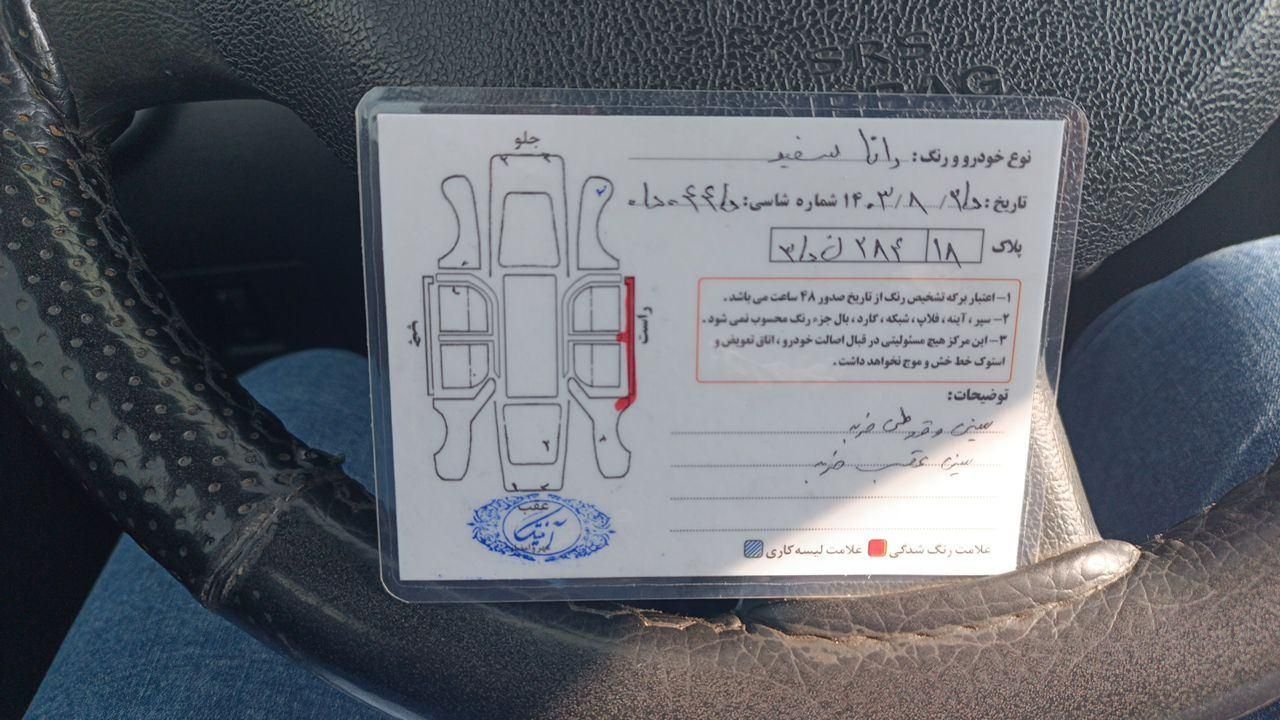 SRS
جلو
نوع خودرو و رنگ: رانا سفید
تاریخ: ۱۴۰۳/۸/ شماره شاسی:
پلاک ۱۸
۱- اعتبار برگه تشخیص رنگ از تاریخ صدور ۴۸ ساعت می باشد.
۲- سپر، آینه، فلاپ، شبکه، گارد، بال جزء رنگ محسوب نمی شود.
۳- این مرکز هیچ مسئولیتی در قبال اصالت خودرو، اتاق تعویض و
استوک خط خش و موج نخواهد داشت.
راست
توضیحات:
سینی و قوطی ضربه
سینی عقب ضربه
عقب
علامت رنگ شدگی علامت لیسه کاری